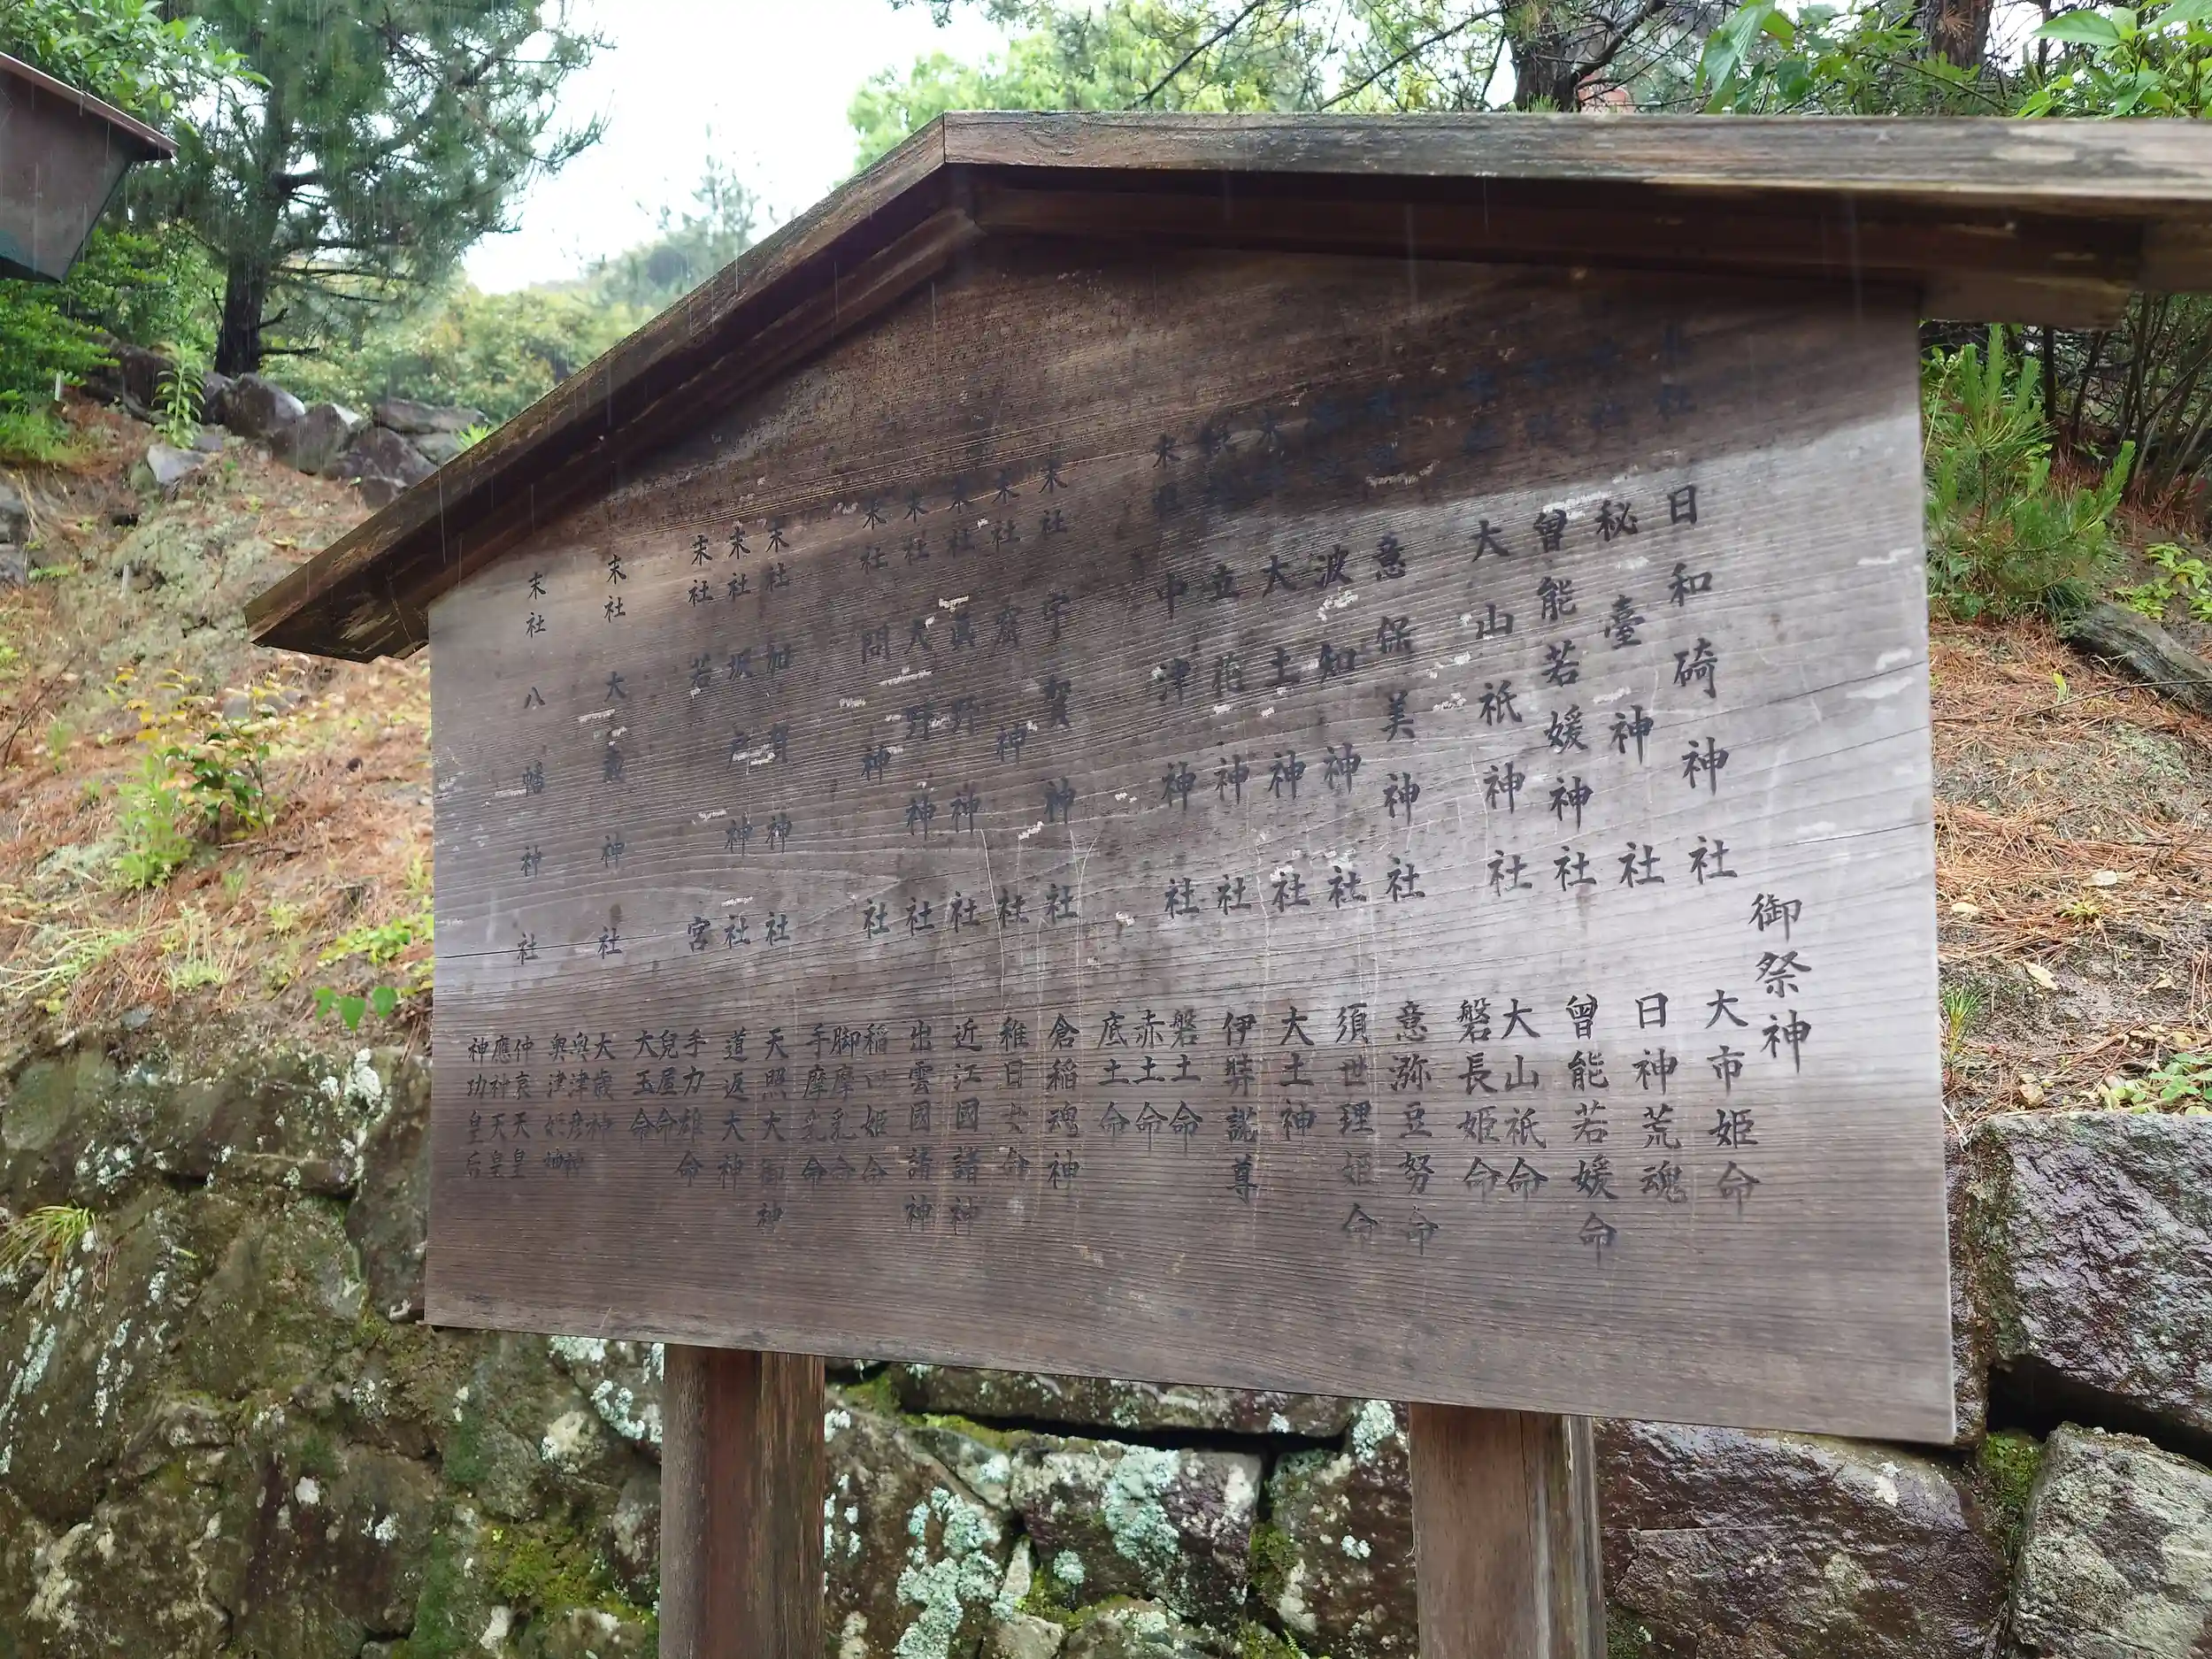 御祭神
日和碕神社 大市姫命
秘臺神社 日神荒魂
曾能若媛神社 曾能若媛命
大山祇神社 大山祇命
磐長姫命
意保美神社 意弥豆努命
波知神社 須世理姫命
大土神社 大土神
立花神社 伊弉諾尊
末社 中津神社 磐土命
赤土命
底土命
末社 宇賀神社 倉稲魂神
末社 齋神社 稚日女命
末社 眞野神社 近江國諸神
末社 大野神社 出雲國諸神
末社 問神社 稲田姫命
脚摩乳命
手摩乳命
末社 加賀神社 天照大御神
末社 坂戸神社 道返大神
末社 若宮 手力雄命
兒屋命
大玉命
末社 大神社 大歳神
奥津彦神
奥津姫神
末社 八幡神社 仲哀天皇
應神天皇
神功皇后